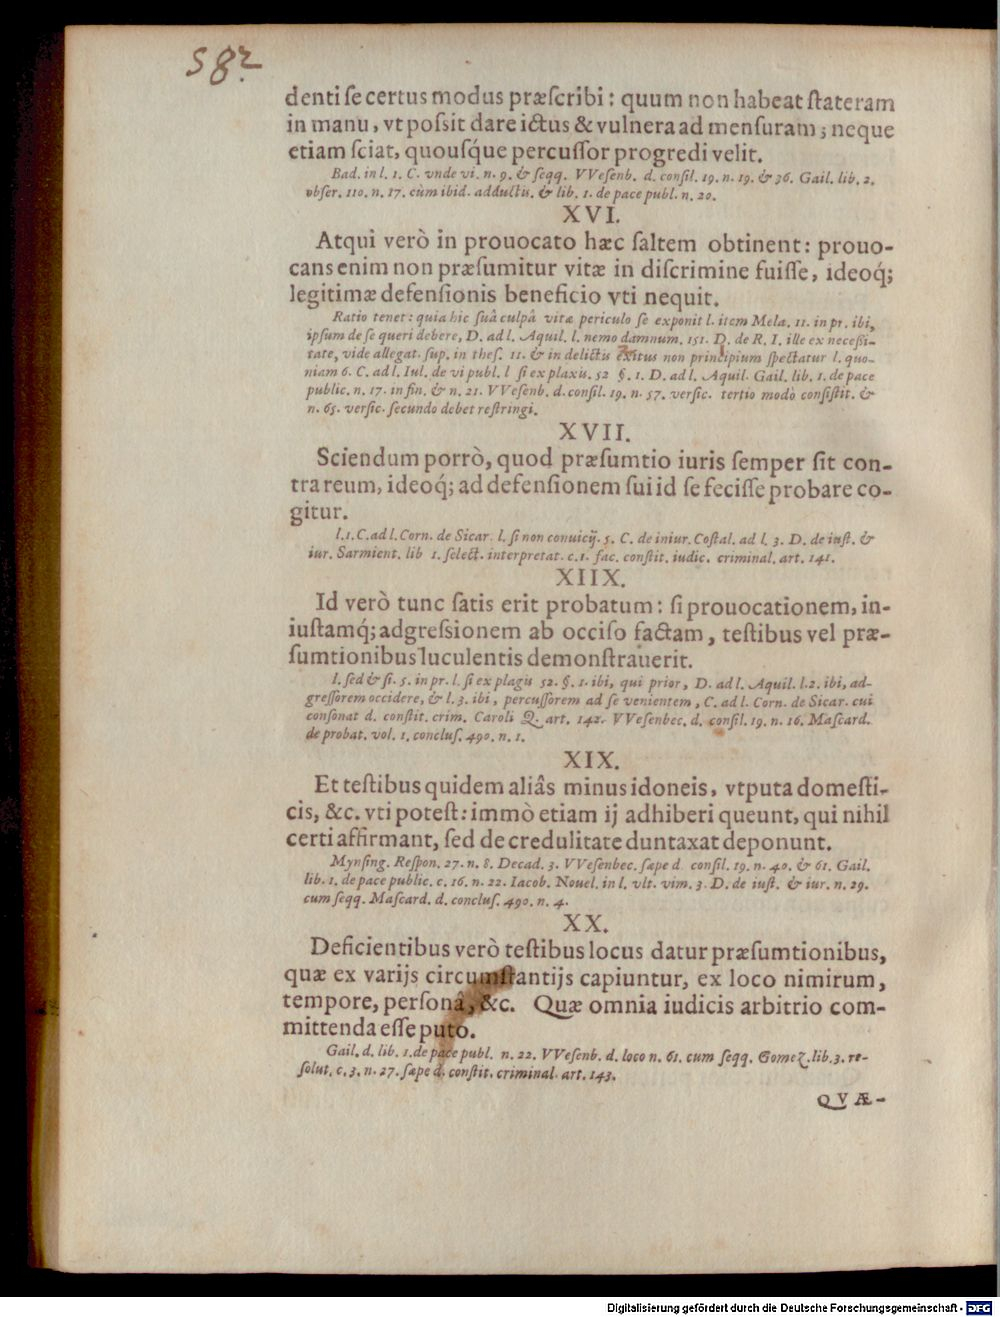 582
denti se certus modus præscribi: quum non habeat stateram
in manu, vt possit dare ictus & vulnera ad mensuram; neque
etiam sciat, quousq́ue percussor progredi velit.
Bad. in l. 1. C. vnde vi. n. 9. & seqq. VVesenb. d. consil. 19. n. 19. & 36. Gail. lib. 2.
obser. 110. n. 17. cùm ibid. adductis. & lib. 1. de pace publ. n. 20.
XVI.
Atqui verò in prouocato hæc saltem obtinent: prouo-
cans enim non præsumitur vitæ in discrimine fuisse, ideoq́;
legitimæ defensionis beneficio vti nequit.
Ratio tenet: quia hic suâ culpâ vitæ periculo se exponit l. item Mela. 11. in pr. ibi,
ipsum de se queri debere, D. ad l. Aquil. l. nemo damnum. 151. D. de R. I. ille ex necessi-
tate, vide allegat. sup. in thes. 11. & in delictis exitus non principium spectatur l. quo-
niam 6. C. ad l. Iul. de vi publ. l si ex plaxis. 52 §. 1. D. ad l. Aquil. Gail. lib. 1. de pace
public. n. 17. in fin. & n. 21. VVesenb. d. consil. 19. n. 57. versic. tertio modò consistit. &
n. 65. versic. secundo debet restringi.
XVII.
Sciendum porrò, quod præsumtio iuris semper sit con-
tra reum, ideoq́; ad defensionem sui id se fecisse probare co-
gitur.
l. 1. C. ad l. Corn. de Sicar. l. si non conuicij. 5. C. de iniur. Costal. ad l. 3. D. de iust. &
iur. Sarmient. lib 1. select. interpretat. c. 1. fac. constit. iudic. criminal. art. 141.
XIIX.
Id verò tunc satis erit probatum: si prouocationem, in-
iustamq́; adgressionem ab occiso factam, testibus vel præ-
sumtionibus luculentis demonstrauerit.
l. sed & si. 5. in pr. l. si ex plagis 52. §. 1. ibi, qui prior, D. ad l. Aquil. l. 2. ibi, ad-
gressorem occidere, & l. 3. ibi, percussorem ad se venientem, C. ad l. Corn. de Sicar. cui
consonat d. constit. crim. Caroli Q. art. 142. VVesenbec. d. consil. 19. n. 16. Mascard.
de probat. vol. 1. conclus. 490. n. 1.
XIX.
Et testibus quidem aliâs minus idoneis, vtputa domesti-
cis, &c. vti potest: immò etiam ij adhiberi queunt, qui nihil
certi affirmant, sed de credulitate duntaxat deponunt.
Mynsing. Respon. 27. n. 8. Decad. 3. VVesenbec. sæpe d. consil. 19. n. 40. & 61. Gail.
lib. 1. de pace public. c. 16. n. 22. Iacob. Nouel. in l. vlt. vim. 3. D. de iust. & iur. n. 29.
cum seqq. Mascard. d. conclus. 490. n. 4.
XX.
Deficientibus verò testibus locus datur præsumtionibus,
quæ ex varijs circumstantijs capiuntur, ex loco nimirum,
tempore, personâ, &c. Quæ omnia iudicis arbitrio com-
mittenda esse puto.
Gail. d. lib. 1. de pace publ. n. 22. VVesenb. d. loco n. 61. cum seqq. Gomez. lib. 3. re-
solut. c. 3. n. 27. sæpe d. constit. criminal. art. 143.
QVÆ-
Digitalisierung gefördert durch die Deutsche Forschungsgemeinschaft - DFG